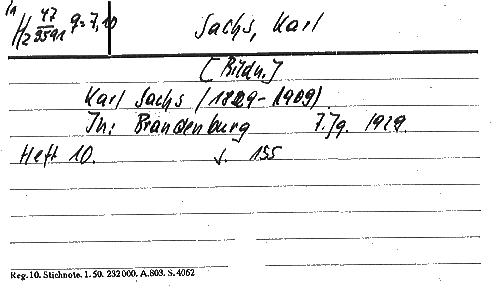 in
Hz 47/9591 q=7,10
Sachs, Karl
[Bildn.]
Karl Sachs (1829-1909).
In: Brandenburg 7.Jg. 1929.
Heft 10. S. 155
Reg. 10. Stichnote. 1. 50. 232 000. A.803. S. 4062